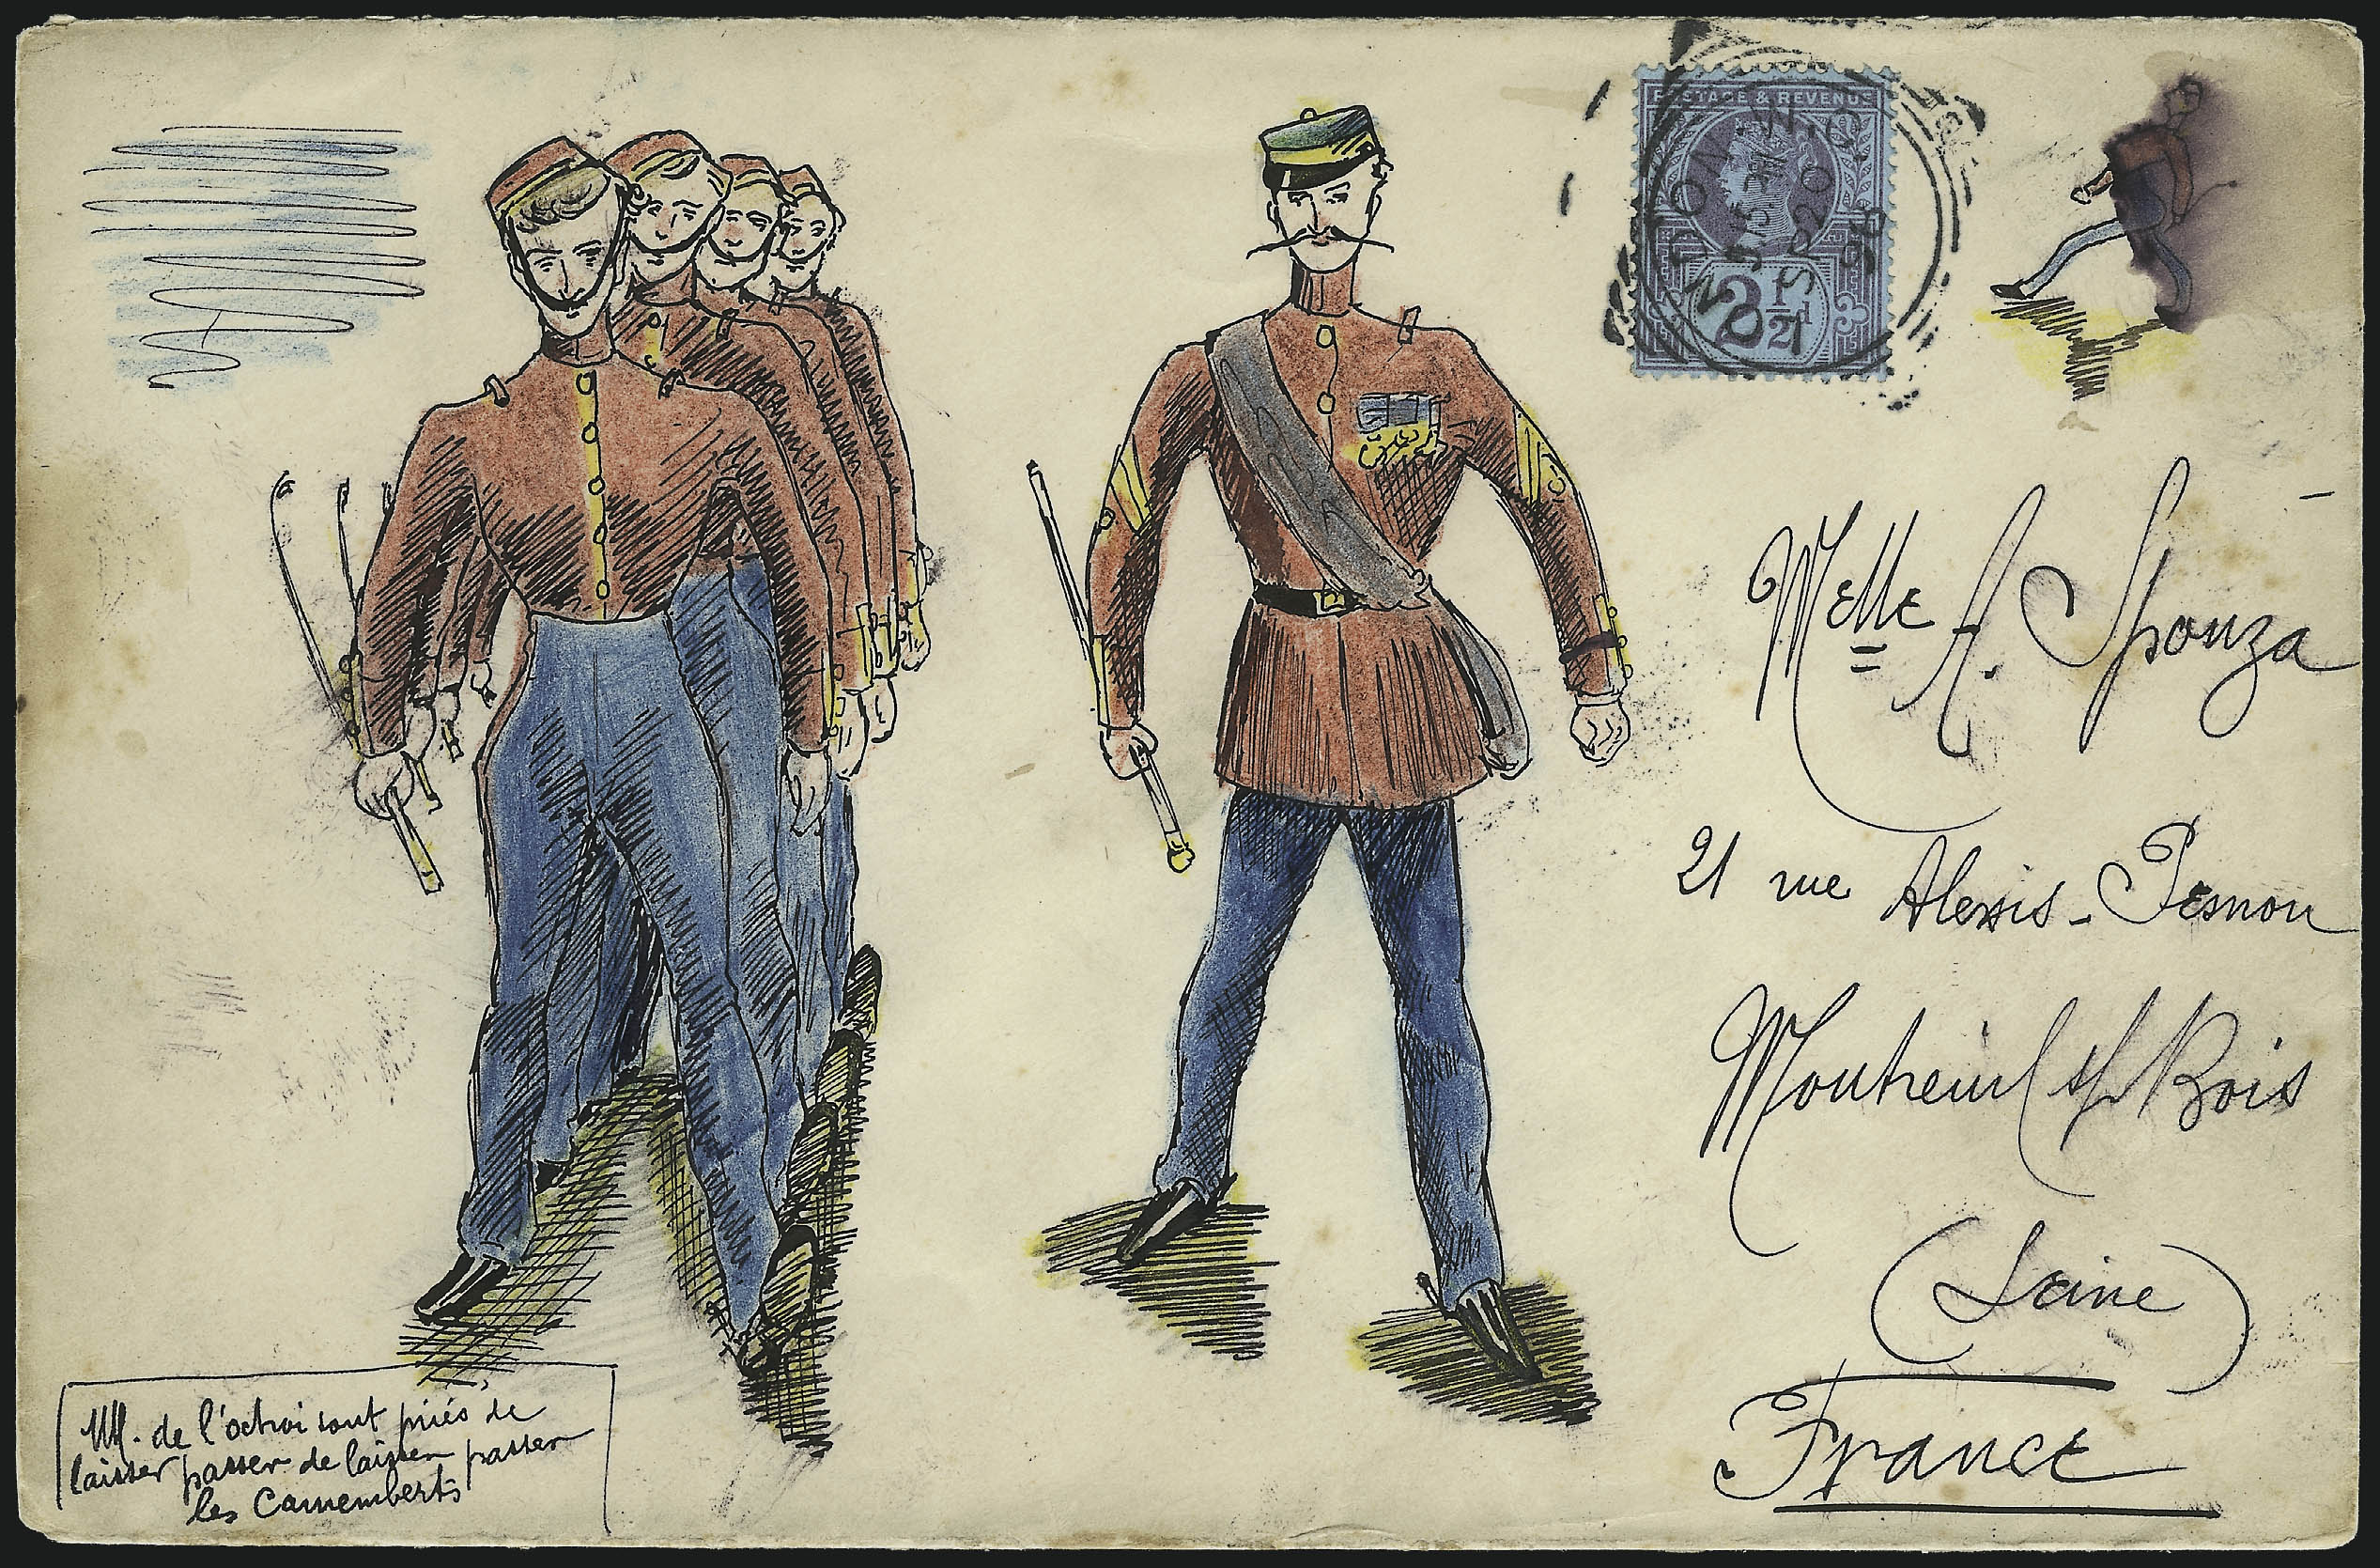 POSTAGE & REVENUE
2½d
Melle A. Sponza
21 rue Alexis-Pesnon
Montreuil s/ Bois
(Seine)
France
MM. de l'octroi sont priés de
laisser passer de laisser passer
les Camemberts